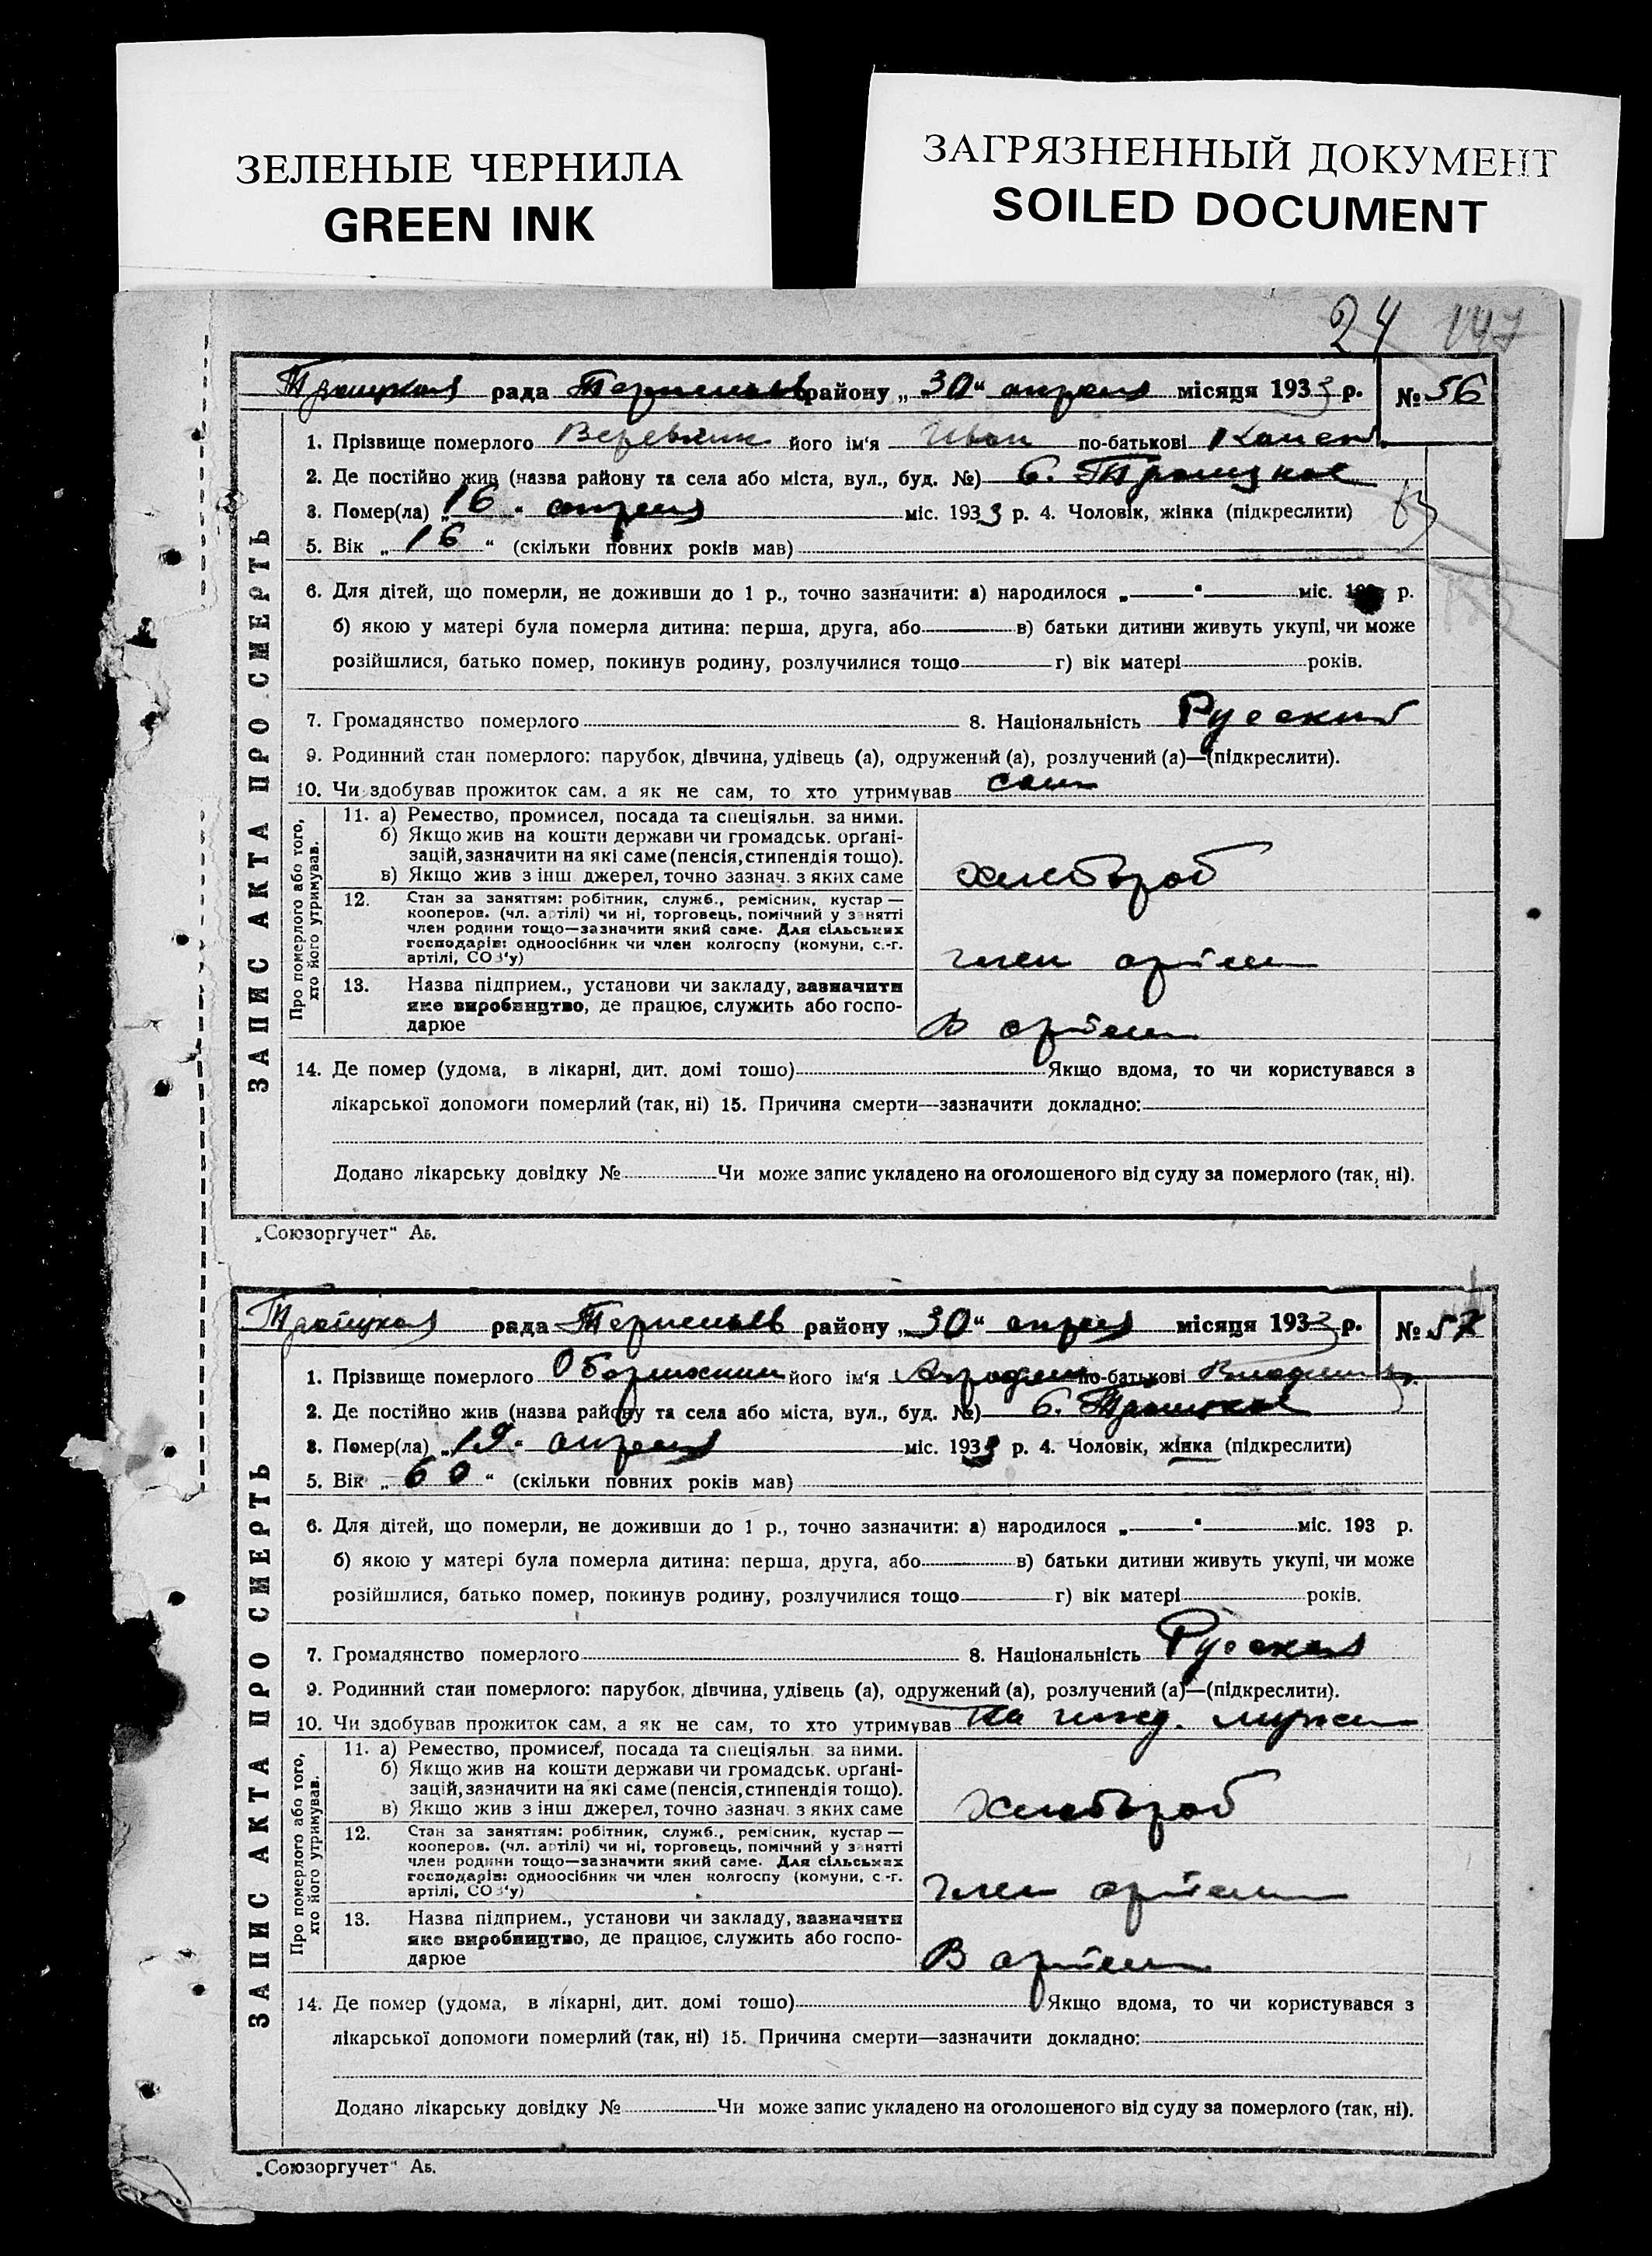 ЗЕЛЕНЫЕ ЧЕРНИЛА
GREEN INK
ЗАГРЯЗНЕННЫЙ ДОКУМЕНТ
SOILED DOCUMENT
24 147
Троицкая рада району „30“ апреля місяця 1933 р. № 56
1. Прізвище померлого його ім'я Иван по-батькові
2. Де постійно жив (назва району та села або міста, вул., буд. №) с. Троицкое
3. Помер(ла) „16“ апреля міс. 1933 р. 4. Чоловік, жінка (підкреслити)
5. Вік „16“ (скільки повних років мав)
6. Для дітей, що померли, не доживши до 1 р., точно зазначити: а) народилося „ “ міс. 193 р.
б) якою у матері була померла дитина: перша, друга, або в) батьки дитини живуть укупі, чи може
розійшлися, батько помер, покинув родину, розлучилися тощо г) вік матері років.
7. Громадянство померлого 8. Національність Русский
9. Родинний стан померлого: парубок, дівчина, удівець (а), одружений (а), розлучений (а)—(підкреслити).
10. Чи здобував прожиток сам, а як не сам, то хто утримував сам
ЗАПИС АКТА ПРО СМЕРТЬ
Про померлого або того, хто його утримував.
11. а) Ремество, промисел, посада та спеціяльн. за ними.
б) Якщо жив на кошти держави чи громадськ. орґані-
зацій, зазначити на які саме (пенсія, стипендія тощо).
в) Якщо жив з інш джерел, точно зазнач. з яких саме хлебороб
12. Стан за заняттям: робітник, служб., ремісник, кустар —
кооперов. (чл. артілі) чи ні, торговець, помічний у занятті
член родини тощо—зазначити який саме. Для сільських
господарів: одноосібник чи член колгоспу (комуни, с.-г.
артілі, СОЗ'у) член артели
13. Назва підприєм., установи чи закладу, зазначити
яке виробництво, де працює, служить або госпо-
дарює В артели
14. Де помер (удома, в лікарні, дит. домі тощо) Якщо вдома, то чи користувався з
лікарської допомоги померлий (так, ні) 15. Причина смерти—зазначити докладно:
Додано лікарську довідку № Чи може запис укладено на оголошеного від суду за померлого (так, ні).
„Союзоргучет“ Аб.
Троицкая рада району „30“ апреля місяця 1933 р. № 57
1. Прізвище померлого його ім'я по-батькові
2. Де постійно жив (назва району та села або міста, вул., буд. №) с. Троицкое
3. Помер(ла) „19“ апреля міс. 1933 р. 4. Чоловік, жінка (підкреслити)
5. Вік „60“ (скільки повних років мав)
6. Для дітей, що померли, не доживши до 1 р., точно зазначити: а) народилося „ “ міс. 193 р.
б) якою у матері була померла дитина: перша, друга, або в) батьки дитини живуть укупі, чи може
розійшлися, батько помер, покинув родину, розлучилися тощо г) вік матері років.
7. Громадянство померлого 8. Національність Русская
9. Родинний стан померлого: парубок, дівчина, удівець (а), одружений (а), розлучений (а)—(підкреслити).
10. Чи здобував прожиток сам, а як не сам, то хто утримував На ижд. мужа
ЗАПИС АКТА ПРО СМЕРТЬ
Про померлого або того, хто його утримував.
11. а) Ремество, промисел, посада та спеціяльн. за ними.
б) Якщо жив на кошти держави чи громадськ. орґані-
зацій, зазначити на які саме (пенсія, стипендія тощо).
в) Якщо жив з інш джерел, точно зазнач. з яких саме хлебороб
12. Стан за заняттям: робітник, служб., ремісник, кустар —
кооперов. (чл. артілі) чи ні, торговець, помічний у занятті
член родини тощо—зазначити який саме. Для сільських
господарів: одноосібник чи член колгоспу (комуни, с.-г.
артілі, СОЗ'у) член артели
13. Назва підприєм., установи чи закладу, зазначити
яке виробництво, де працює, служить або госпо-
дарює В артели
14. Де помер (удома, в лікарні, дит. домі тощо) Якщо вдома, то чи користувався з
лікарської допомоги померлий (так, ні) 15. Причина смерти—зазначити докладно:
Додано лікарську довідку № Чи може запис укладено на оголошеного від суду за померлого (так, ні).
„Союзоргучет“ Аб.